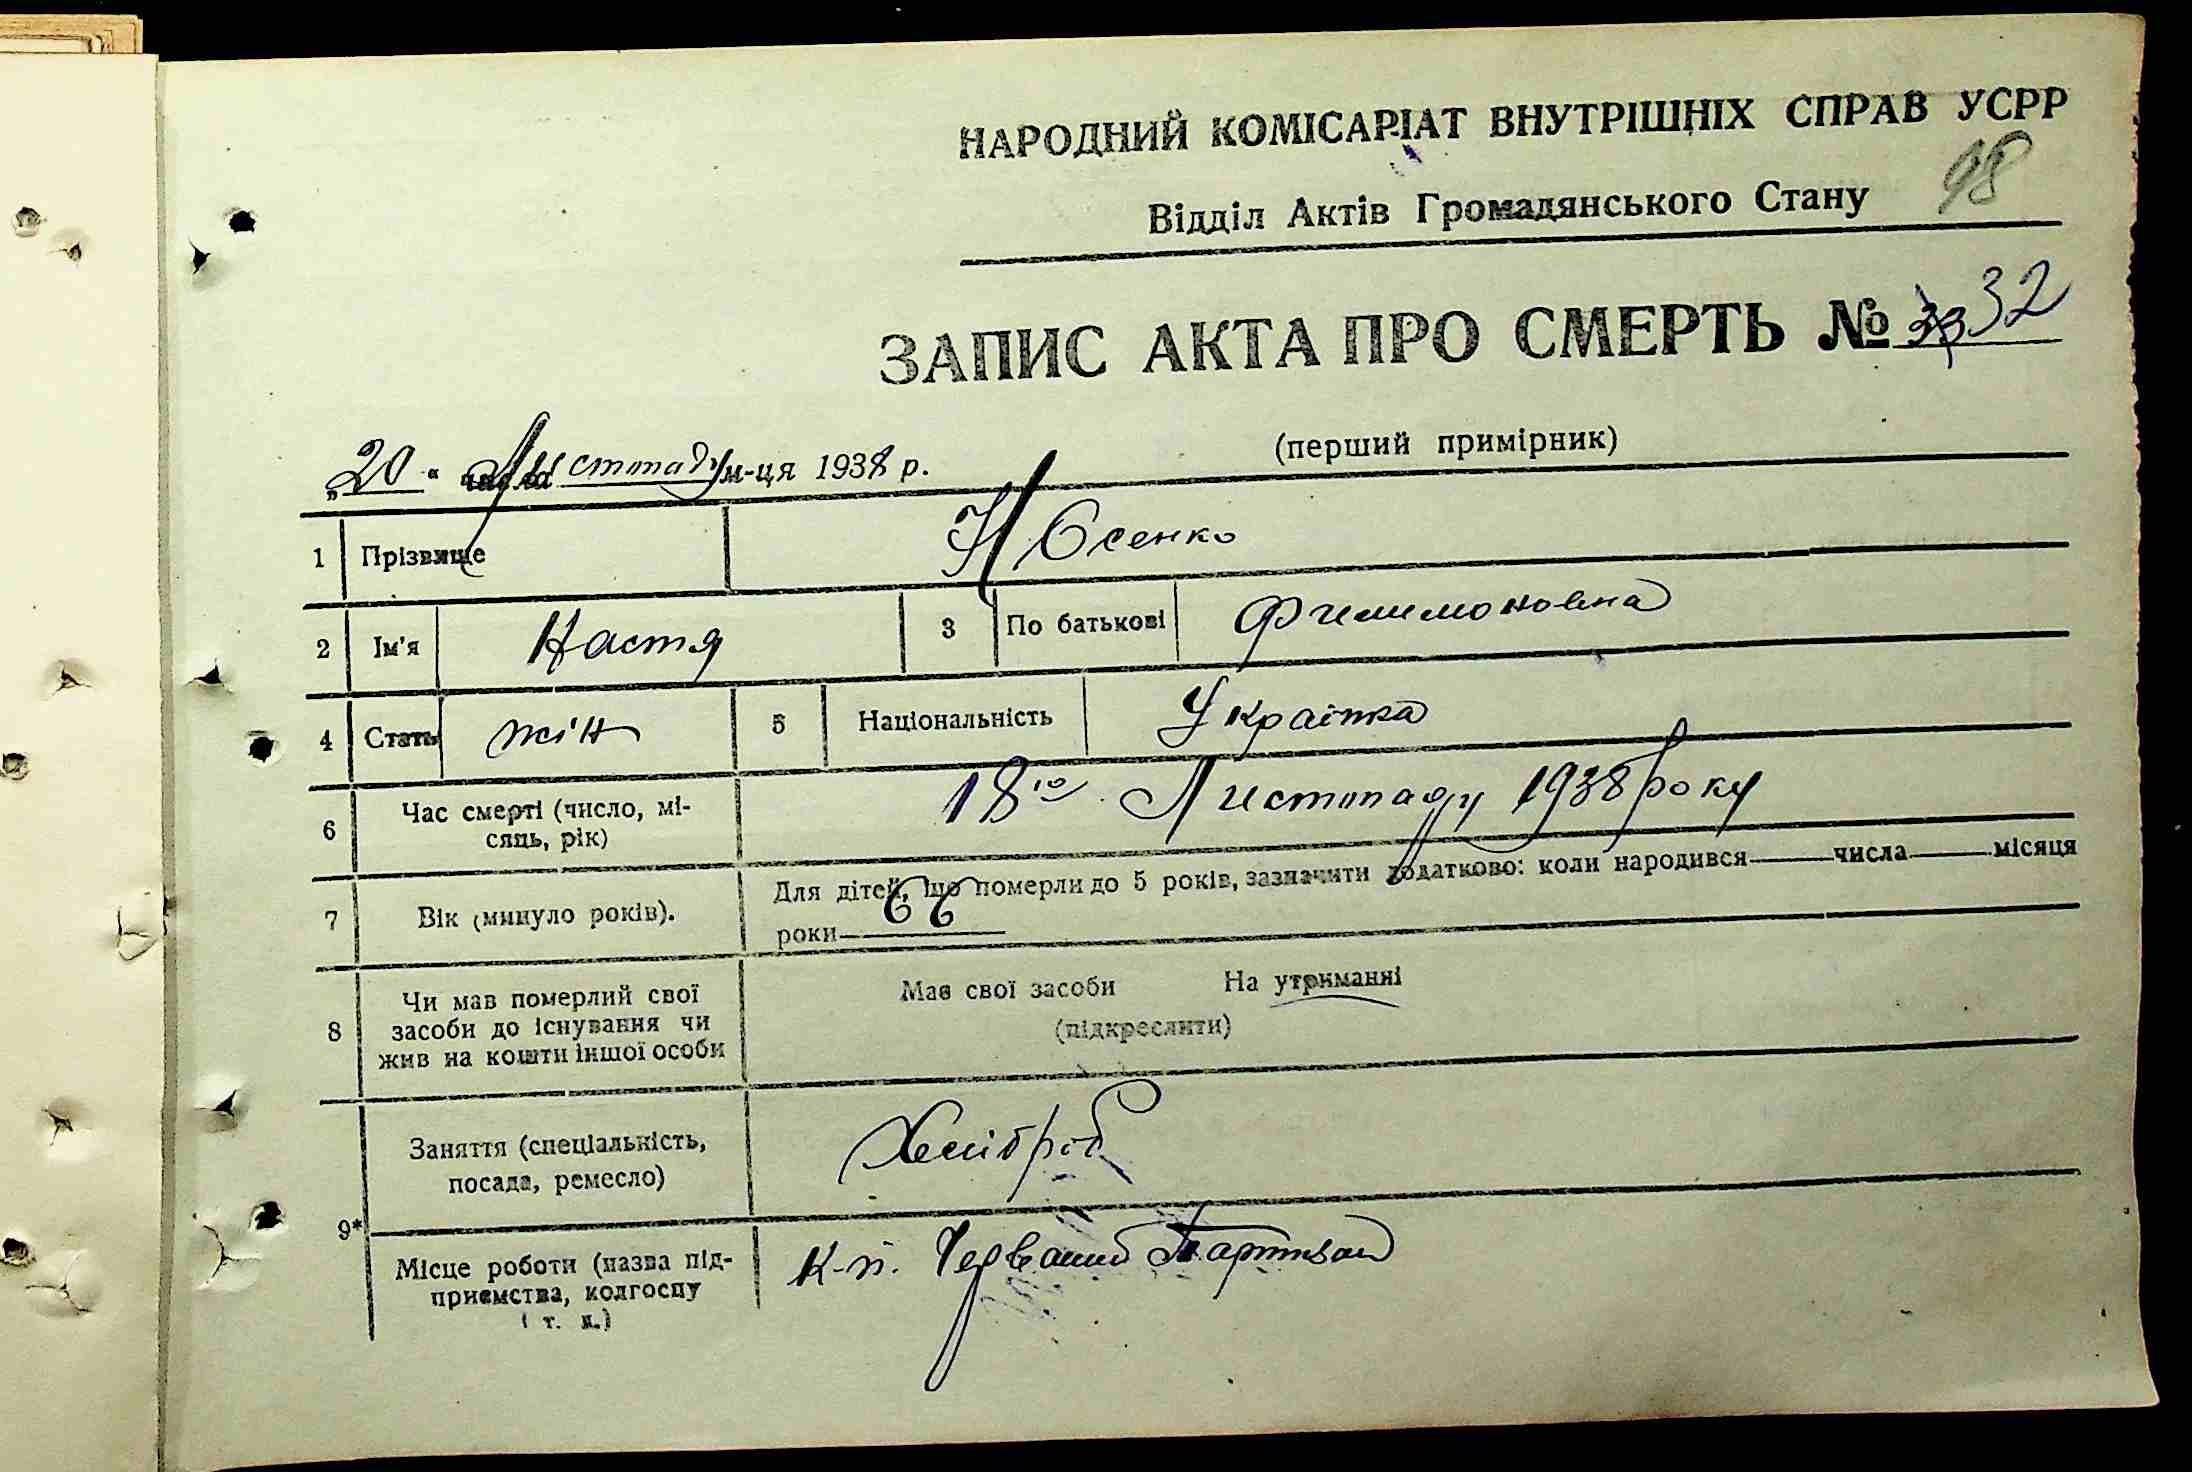 НАРОДНИЙ КОМІСАРІАТ ВНУТРІШНІХ СПРАВ УСРР
98
Відділ Актів Громадянського Стану
ЗАПИС АКТА ПРО СМЕРТЬ № 32
(перший примірник)
„20" числа Листопаду м-ця 1938 р.
1 Прізвище Носенко
2 Ім'я Настя 3 По батькові Филимоновна
4 Стать жін 5 Національність Українка
6 Час смерті (число, мі-
сяць, рік) 18го Листопаду 1938 року
7 Вік (минуло років). Для дітей, що померли до 5 років, зазначити додатково: коли народився числа місяця
роки 66
8 Чи мав померлий свої
засоби до існування чи
жив на кошти іншої особи
Має свої засоби На утриманні
(підкреслити)
9* Заняття (спеціальність,
посада, ремесло) Хлібороб
Місце роботи (назва під-
приємства, колгоспу
і т. п.) К-п. Червоний Партизан